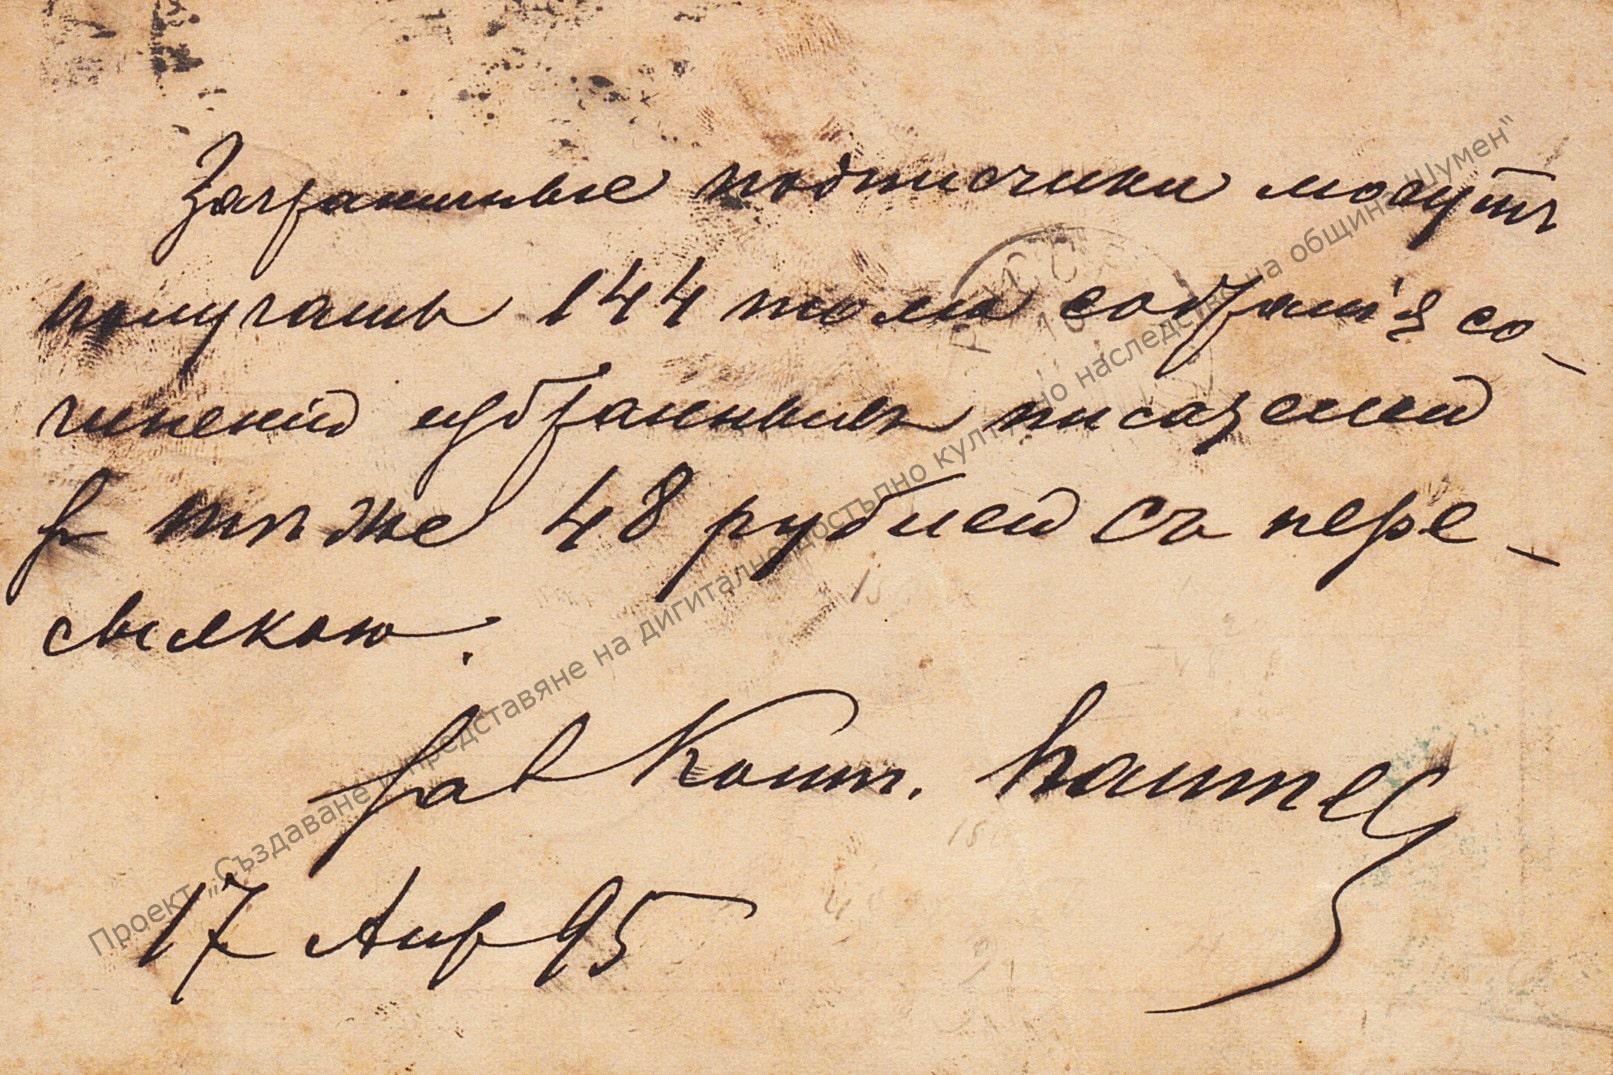 Заграничные подписчики могутъ
получать 144 тома собранія со-
чиненій избранныхъ писателей
за тѣ же 48 рублей съ пере-
сылкою.
Зав Конт.
17 Апр 95
РУССЕ
Проект „Създаване и представяне на дигитално достъпно културно наследство на община Шумен“